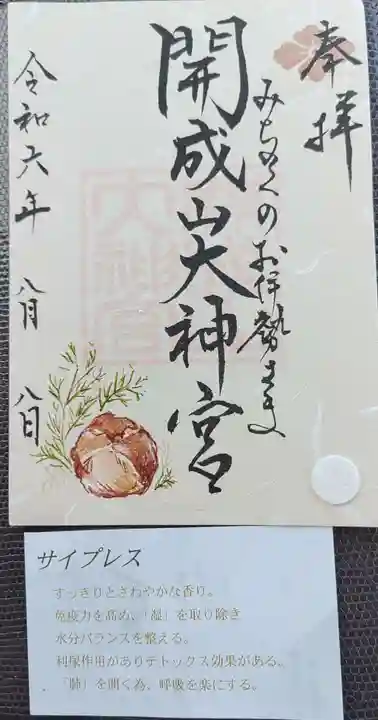 奉拝
みちのくのお伊勢さま
開成山大神宮
令和六年 八月 八日
サイプレス
すっきりとさわやかな香り。
免疫力を高め、「湿」を取り除き
水分バランスを整える。
利尿作用がありデトックス効果がある。
「肺」を開く為、呼吸を楽にする。